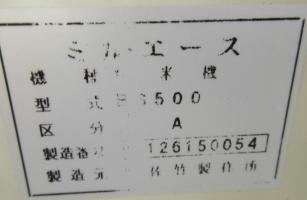 ミル エース
機 械 米 機
型 式 500
区 分 A
製造 126150054
製 造 元 佐 竹 製 作 所